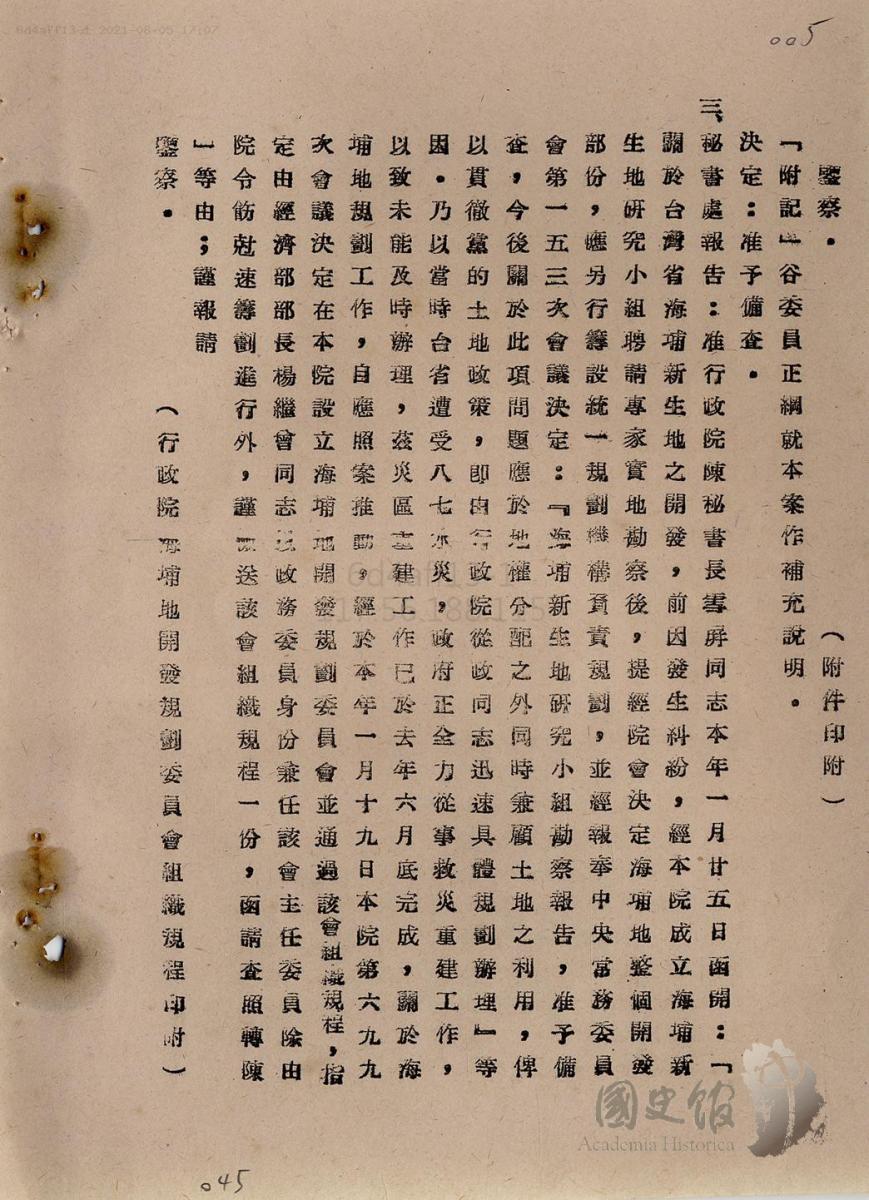 6d4aff13-d 2021-08-05 17:07
005
鑒察。（附件印附）
「附記」谷委員正綱就本案作補充說明。
決定：准予備查。
三、秘書處報告：准行政院陳秘書長雪屏同志本年一月廿五日函開：「
關於台灣省海埔新生地之開發，前因發生糾紛，經本院成立海埔新
生地研究小組聘請專家實地勘察後，提經院會決定海埔地整個開發
部份，應另行籌設統一規劃機構負責規劃，並經報奉中央常務委員
會第一五三次會議決定：『海埔新生地研究小組勘察報告，准予備
查，今後關於此項問題應於地權分配之外同時兼顧土地之利用，俾
以貫徹黨的土地政策，即由行政院從政同志迅速具體規劃辦理』等
因。乃以當時台省遭受八七水災，政府正全力從事救災重建工作，
以致未能及時辦理，茲災區重建工作已於去年六月底完成，關於海
埔地規劃工作，自應照案推動，經於本年一月十九日本院第六九九
次會議決定在本院設立海埔地開發規劃委員會並通過該會組織規程，指
定由經濟部部長楊繼會同志以政務委員身份兼任該會主任委員除由
院令飭尅速籌劃進行外，謹送該會組織規程一份，函請查照轉陳
」等由；謹報請
鑒察。（行政院海埔地開發規劃委員會組織規程印附）
國史館
Academia Historica
045